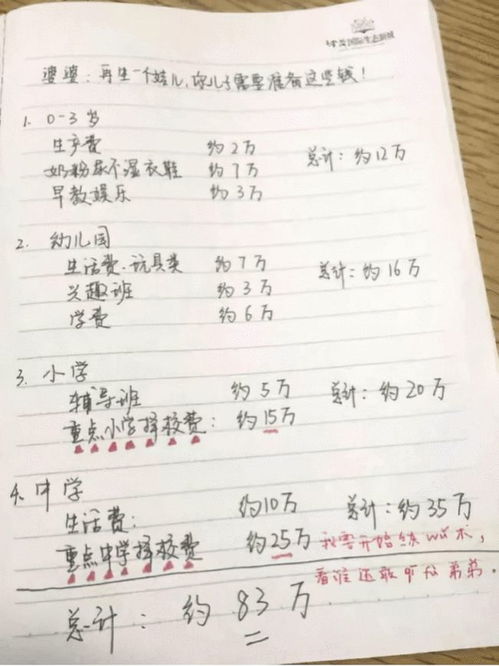 国际生态新城
婆婆：再生一个娃儿，你儿子需要准备这些钱！
1. 0-3岁
生产费 约2万 总计：约12万
奶粉尿不湿衣鞋 约7万
早教娱乐 约3万
2. 幼儿园
生活费.玩具类 约7万 总计：约16万
兴趣班 约3万
学费 约6万
3. 小学
辅导班 约5万 总计：约20万
重点小学择校费： 约15万
4. 中学
生活费： 约10万 总计：约35万
重点中学择校费 约25万
我要开始练武术，
看谁还敢
弟弟.
总计： 约83万